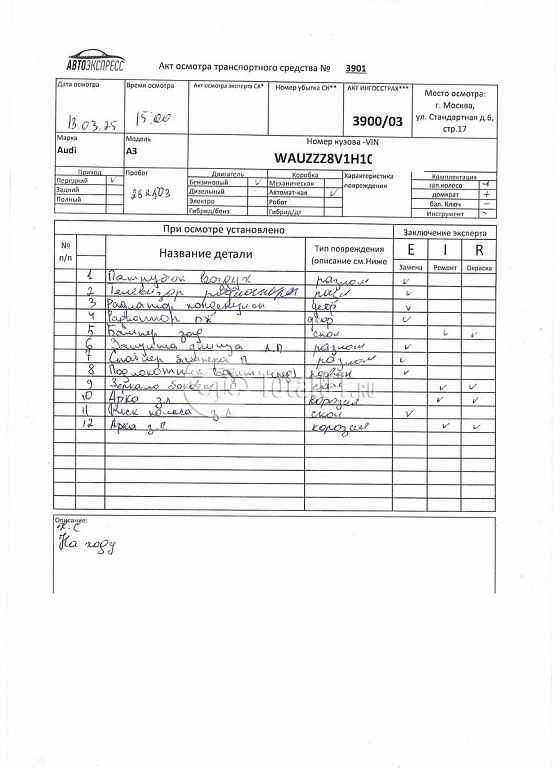 АВТОЭКСПРЕСС
Акт осмотра транспортного средства № 3901
Дата осмотра Время осмотра Акт осмотра эксперта СК* Номер убытка СК** АКТ ИНГОССТРАХ***
Место осмотра:
г. Москва,
ул. Стандартная д.6,
стр.17
13.03.25 15:00 3900/03
Марка Модель Номер кузова -VIN
Audi A3 WAUZZZ8V1H1
Привод Пробег Двигатель Коробка Характеристика повреждения Комплектация
Передний v 282503 Бензиновый v Механическая зап.колесо
Задний Дизельный Автомат-кая v домкрат +
Полный Электро Робот бал. Ключ –
Гибрид/бенз Гибрид/дт Инструмент –
При осмотре установлено Заключение эксперта
№ п/п Название детали Тип повреждения (описание см.Ниже E I R
Замена Ремонт Окраска
1 Патрубок воздух разлом v
2 Телевизор разл v
3 Радиатор кондецион дефор v
4 Радиатор ОЖ дефор v
5 Бампер зад скол v v
6 Защита днища л.п разлом v
7 Спойлер бампера П разлом v
8 Подлокотник порван v
9 Зеркало боковое v v
10 Арка з л корозия v v
11 Диск колеса з.л скол v
12 Арка з.п корозия v v
Описание:
Х.С
На ходу